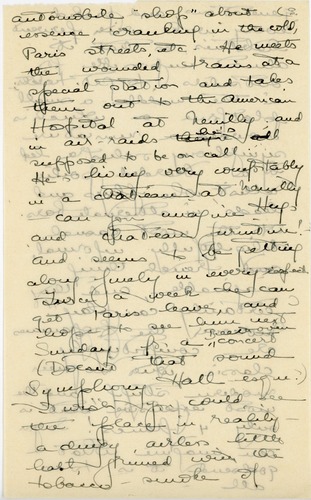 automobile "shop" about (3.
essence, cranking in the cold,
Paris streets, etc. He meets
the wounded trains at a
special station and takes
them out to the American
Hospital at Neuilly and
in air raids he is all
supposed to be on call.
He is living very comfortably
in a chateau at Neuilly
can you imagine
and chateau furniture!
and seems to be getting
along finely in every respect
Twice a week he can
get Paris leave, and
I hope to see him next
Sunday for a concert
(Doesn't that sound
Symphony Hall esque?)
I wish you could see
the place in reality -
a dingy airless little
hall, filled with the
tobacco - smoke of